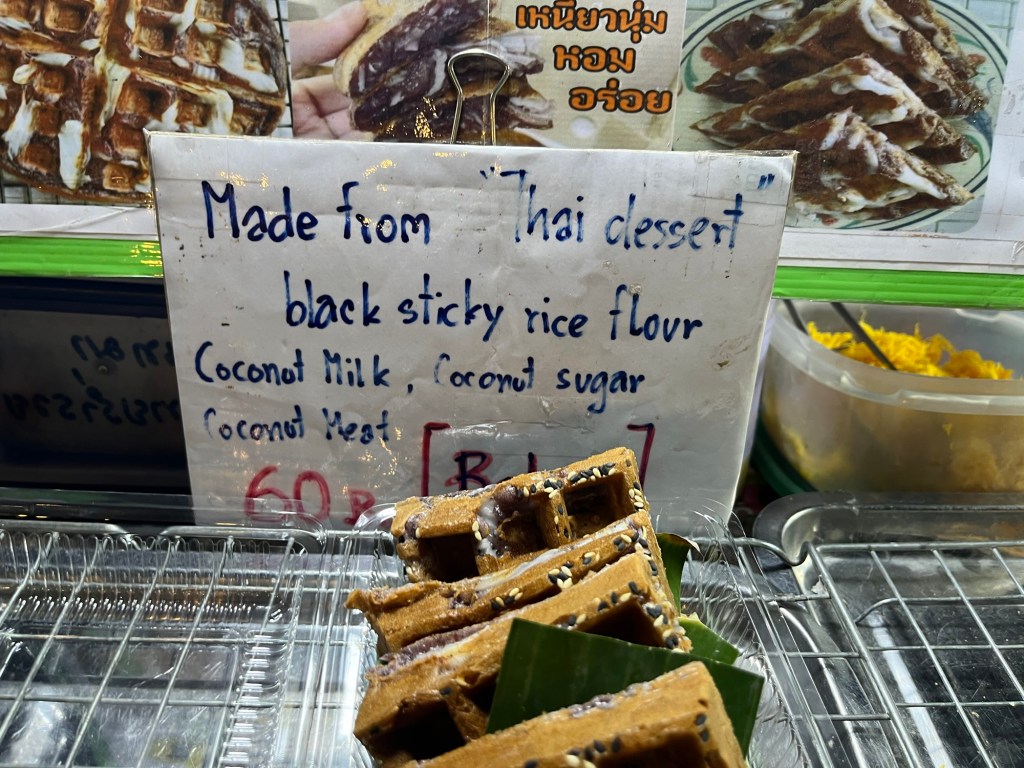 เหนียวนุ่ม
หอม
อร่อย
Made from "Thai dessert"
black sticky rice flour
Coconut Milk, Coconut sugar
Coconut Meat
60 B